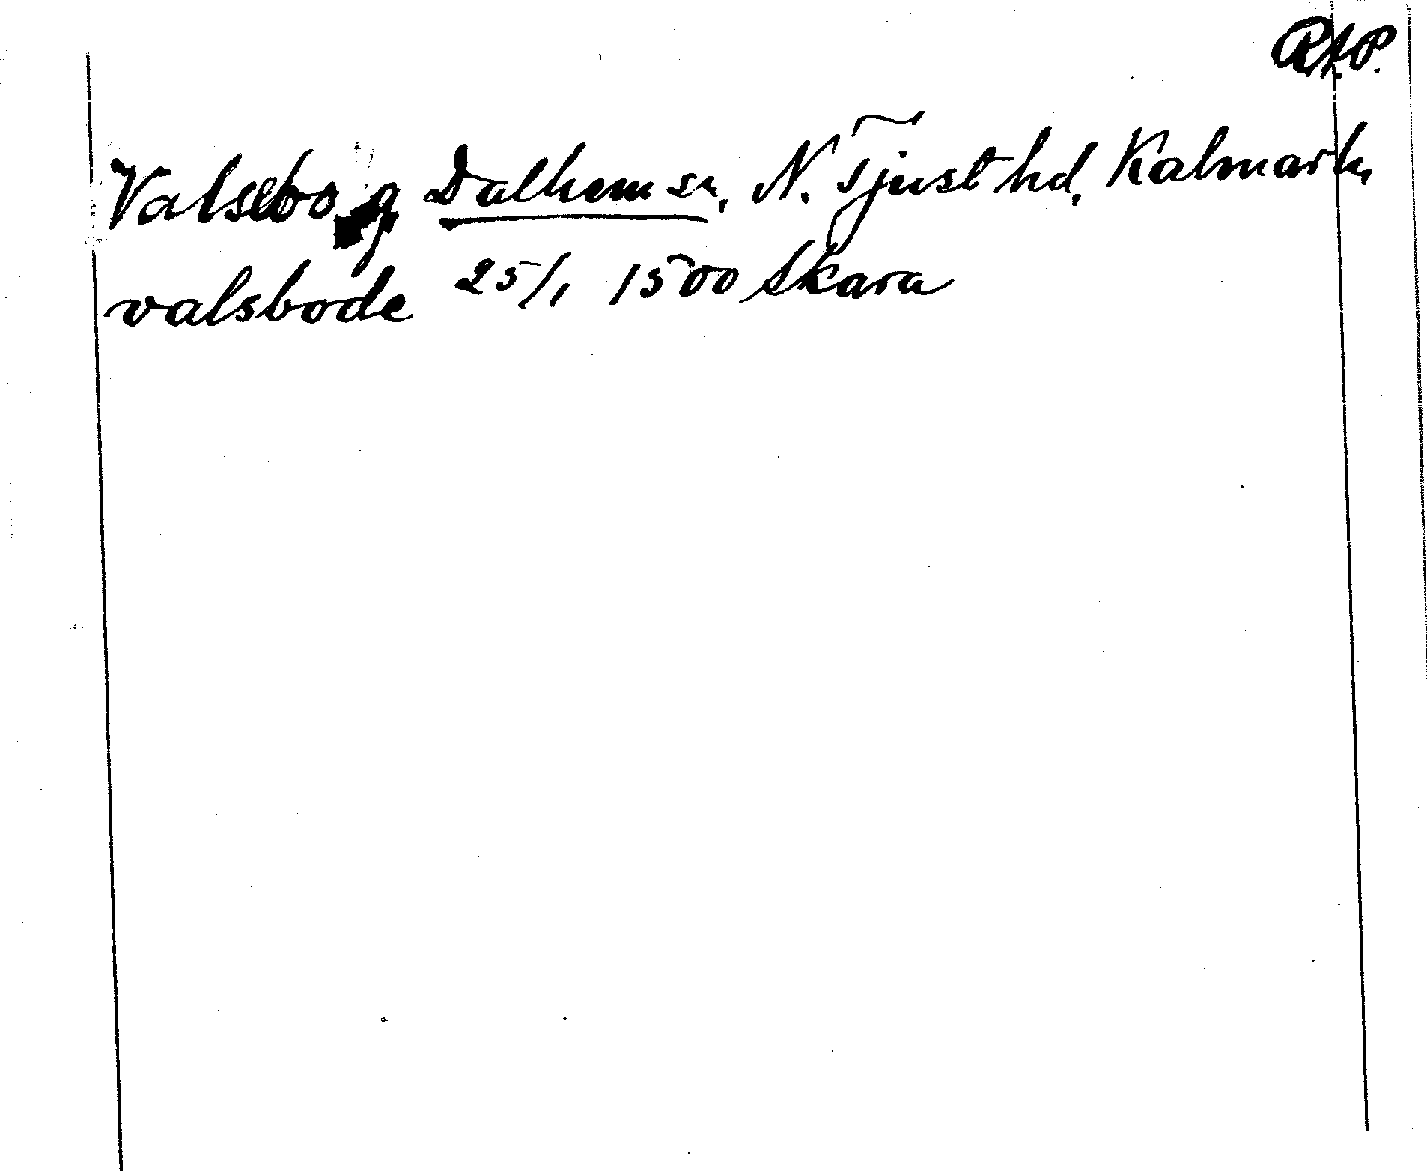 RAP.
Valsebo g Dalhem sn, N. Tjust hd, Kalmar ln
valsbode 25/1 1500 Skara